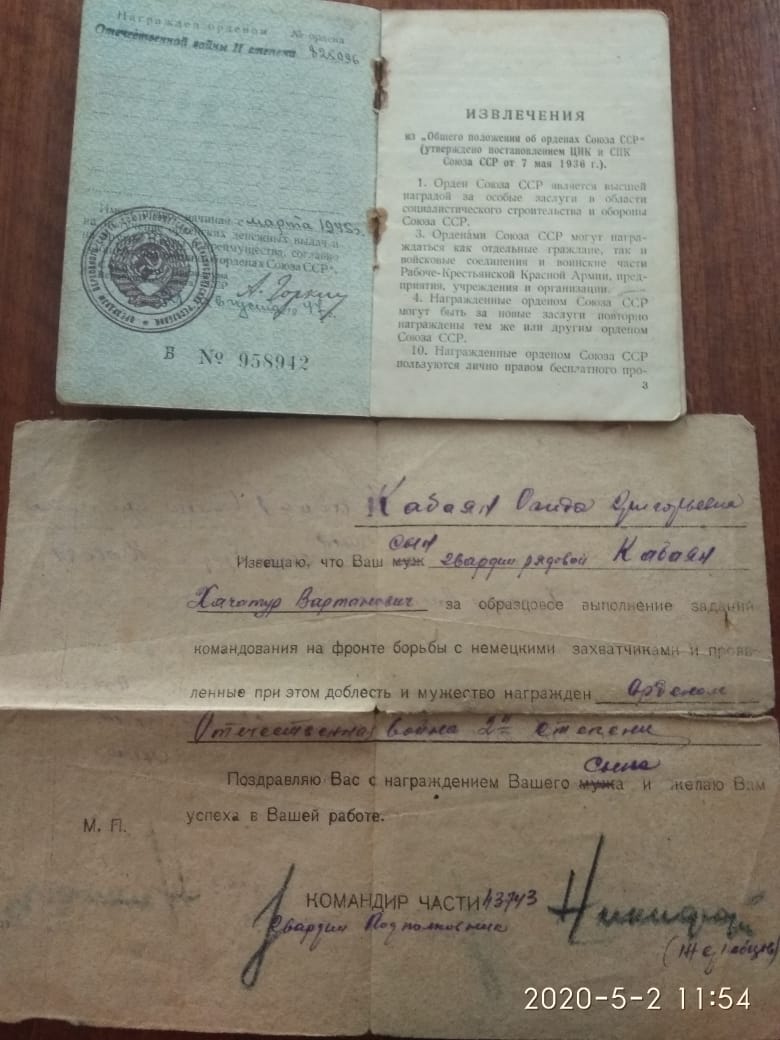 Награжден орденом № ордена
Отечественной войны II степени 825096
начиная с марта 1945 г.
денежных выдач и
преимущества, согласно
орденах Союза ССР".
А. Горкин
августа 47
В № 958942
ИЗВЛЕЧЕНИЯ
из „Общего положения об орденах Союза ССР“
(утверждено постановлением ЦИК и СНК
Союза ССР от 7 мая 1936 г.).
1. Орден Союза ССР является высшей
наградой за особые заслуги в области
социалистического строительства и обороны
Союза ССР.
3. Орденами Союза ССР могут награ-
ждаться как отдельные граждане, так и
войсковые соединения и воинские части
Рабоче-Крестьянской Красной Армии, пред-
приятия, учреждения и организации.
4. Награжденные орденом Союза ССР
могут быть за новые заслуги повторно
награждены тем же или другим орденом
Союза ССР.
10. Награжденные орденом Союза ССР
пользуются лично правом бесплатного про-
3
Кабаян Григорьевна
сын
Извещаю, что Ваш муж гвардии рядовой Кабаян
Хачатур Вартанович за образцовое выполнение заданий
командования на фронте борьбы с немецкими захватчиками и прояв-
ленные при этом доблесть и мужество награжден Орденом
Отечественная война 2й степени
сына
Поздравляю Вас с награждением Вашего мужа и желаю Вам
успеха в Вашей работе.
М. П.
КОМАНДИР ЧАСТИ 43743
Гвардии Подполковник
2020-5-2 11:54